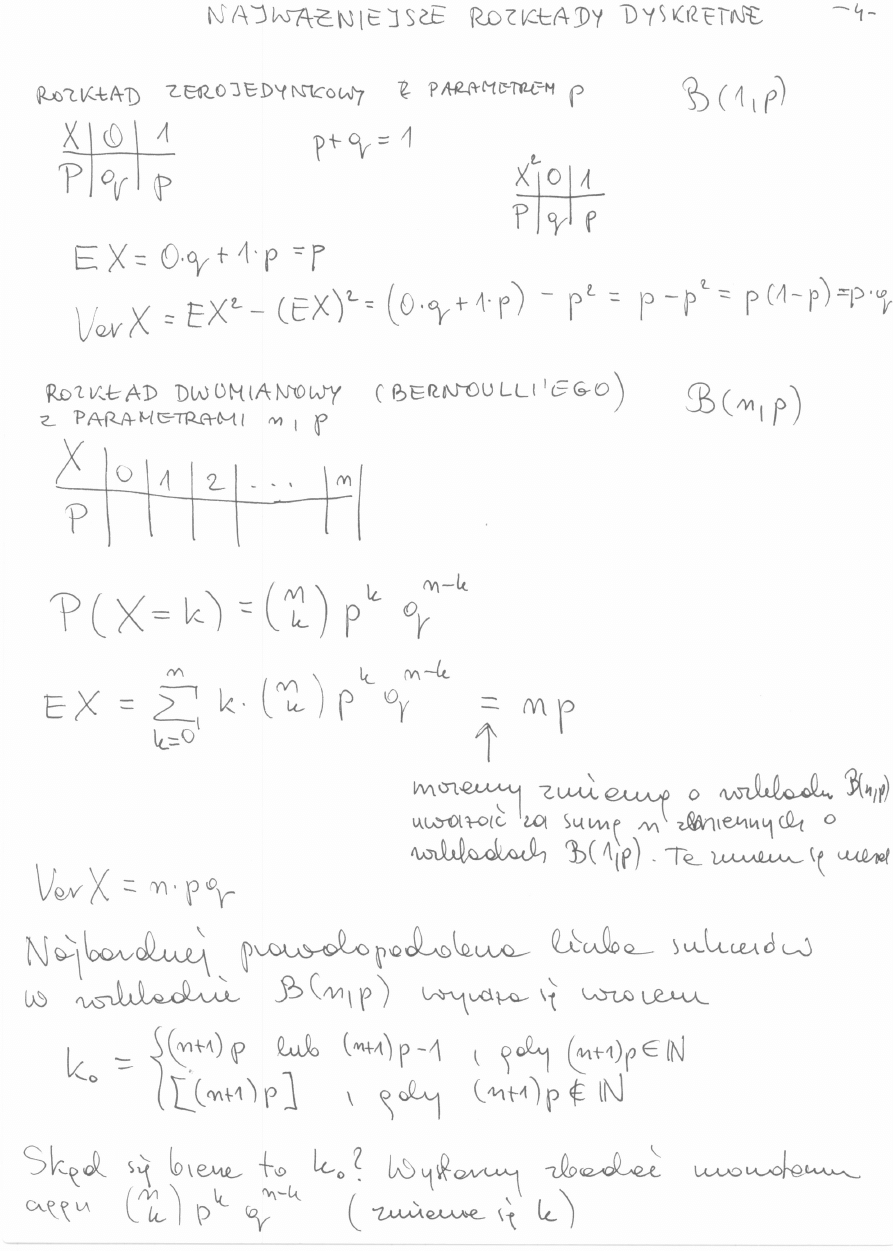 NAJWAŻNIEJSZE ROZKŁADY DYSKRETNE -4-
ROZKŁAD ZEROJEDYNKOWY Z PARAMETREM p B(1,p)
X | 0 | 1
P | q | p
p+q=1
X² | 0 | 1
P | q | p
EX = 0·q + 1·p = p
Var X = EX² - (EX)² = (0·q + 1·p) - p² = p - p² = p(1-p) = p·q
ROZKŁAD DWUMIANOWY (BERNOULLI'EGO) B(n,p)
Z PARAMETRAMI n, p
X | 0 | 1 | 2 | ... | n
P
P(X=k) = (n k) p^k q^(n-k)
EX = Σ_{k=0}^{n} k·(n k) p^k q^(n-k) = np
↑
możemy zmienną o rozkładzie B(n,p)
uważać za sumę n zmiennych o
rozkładach B(1,p). Te zmienne są
Var X = n·pq
Najbardziej prawdopodobna liczba sukcesów
w rozkładzie B(n,p) wyraża się wzorem
k₀ = { (n+1)p lub (n+1)p-1 , gdy (n+1)p ∈ ℕ
[(n+1)p] , gdy (n+1)p ∉ ℕ
Skąd się bierze to k₀? Wystarczy zbadać monoton.
ciągu (n k) p^k q^(n-k) (zmienia się k)